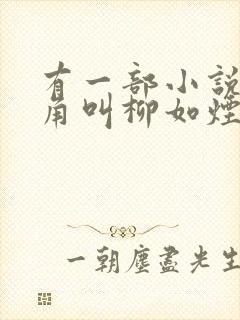 有一部小说
角叫柳如煙
一朝塵盡光生